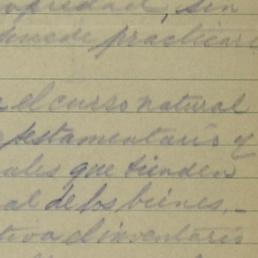 opiedad, sin
puede practicar
el curso natural
testamentario y
ales que tienden
al de los bienes,
tiva el inventario